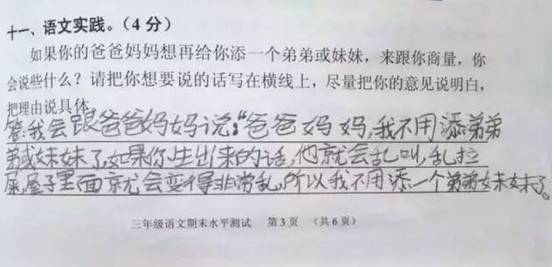 十一、语文实践。(4分)
如果你的爸爸妈妈想再给你添一个弟弟或妹妹，来跟你商量，你
会说些什么？请把你想要说的话写在横线上，尽量把你的意见说明白，
把理由说具体。
答：我会跟爸爸妈妈说：“爸爸妈妈，我不用添弟弟
弟或妹妹了，如果你生出来的话，他就会乱叫，乱拉
屎，屋子里面就会变得非常乱，所以我不用添一个弟弟妹妹了。
三年级语文期末水平测试 第3页 (共6页)